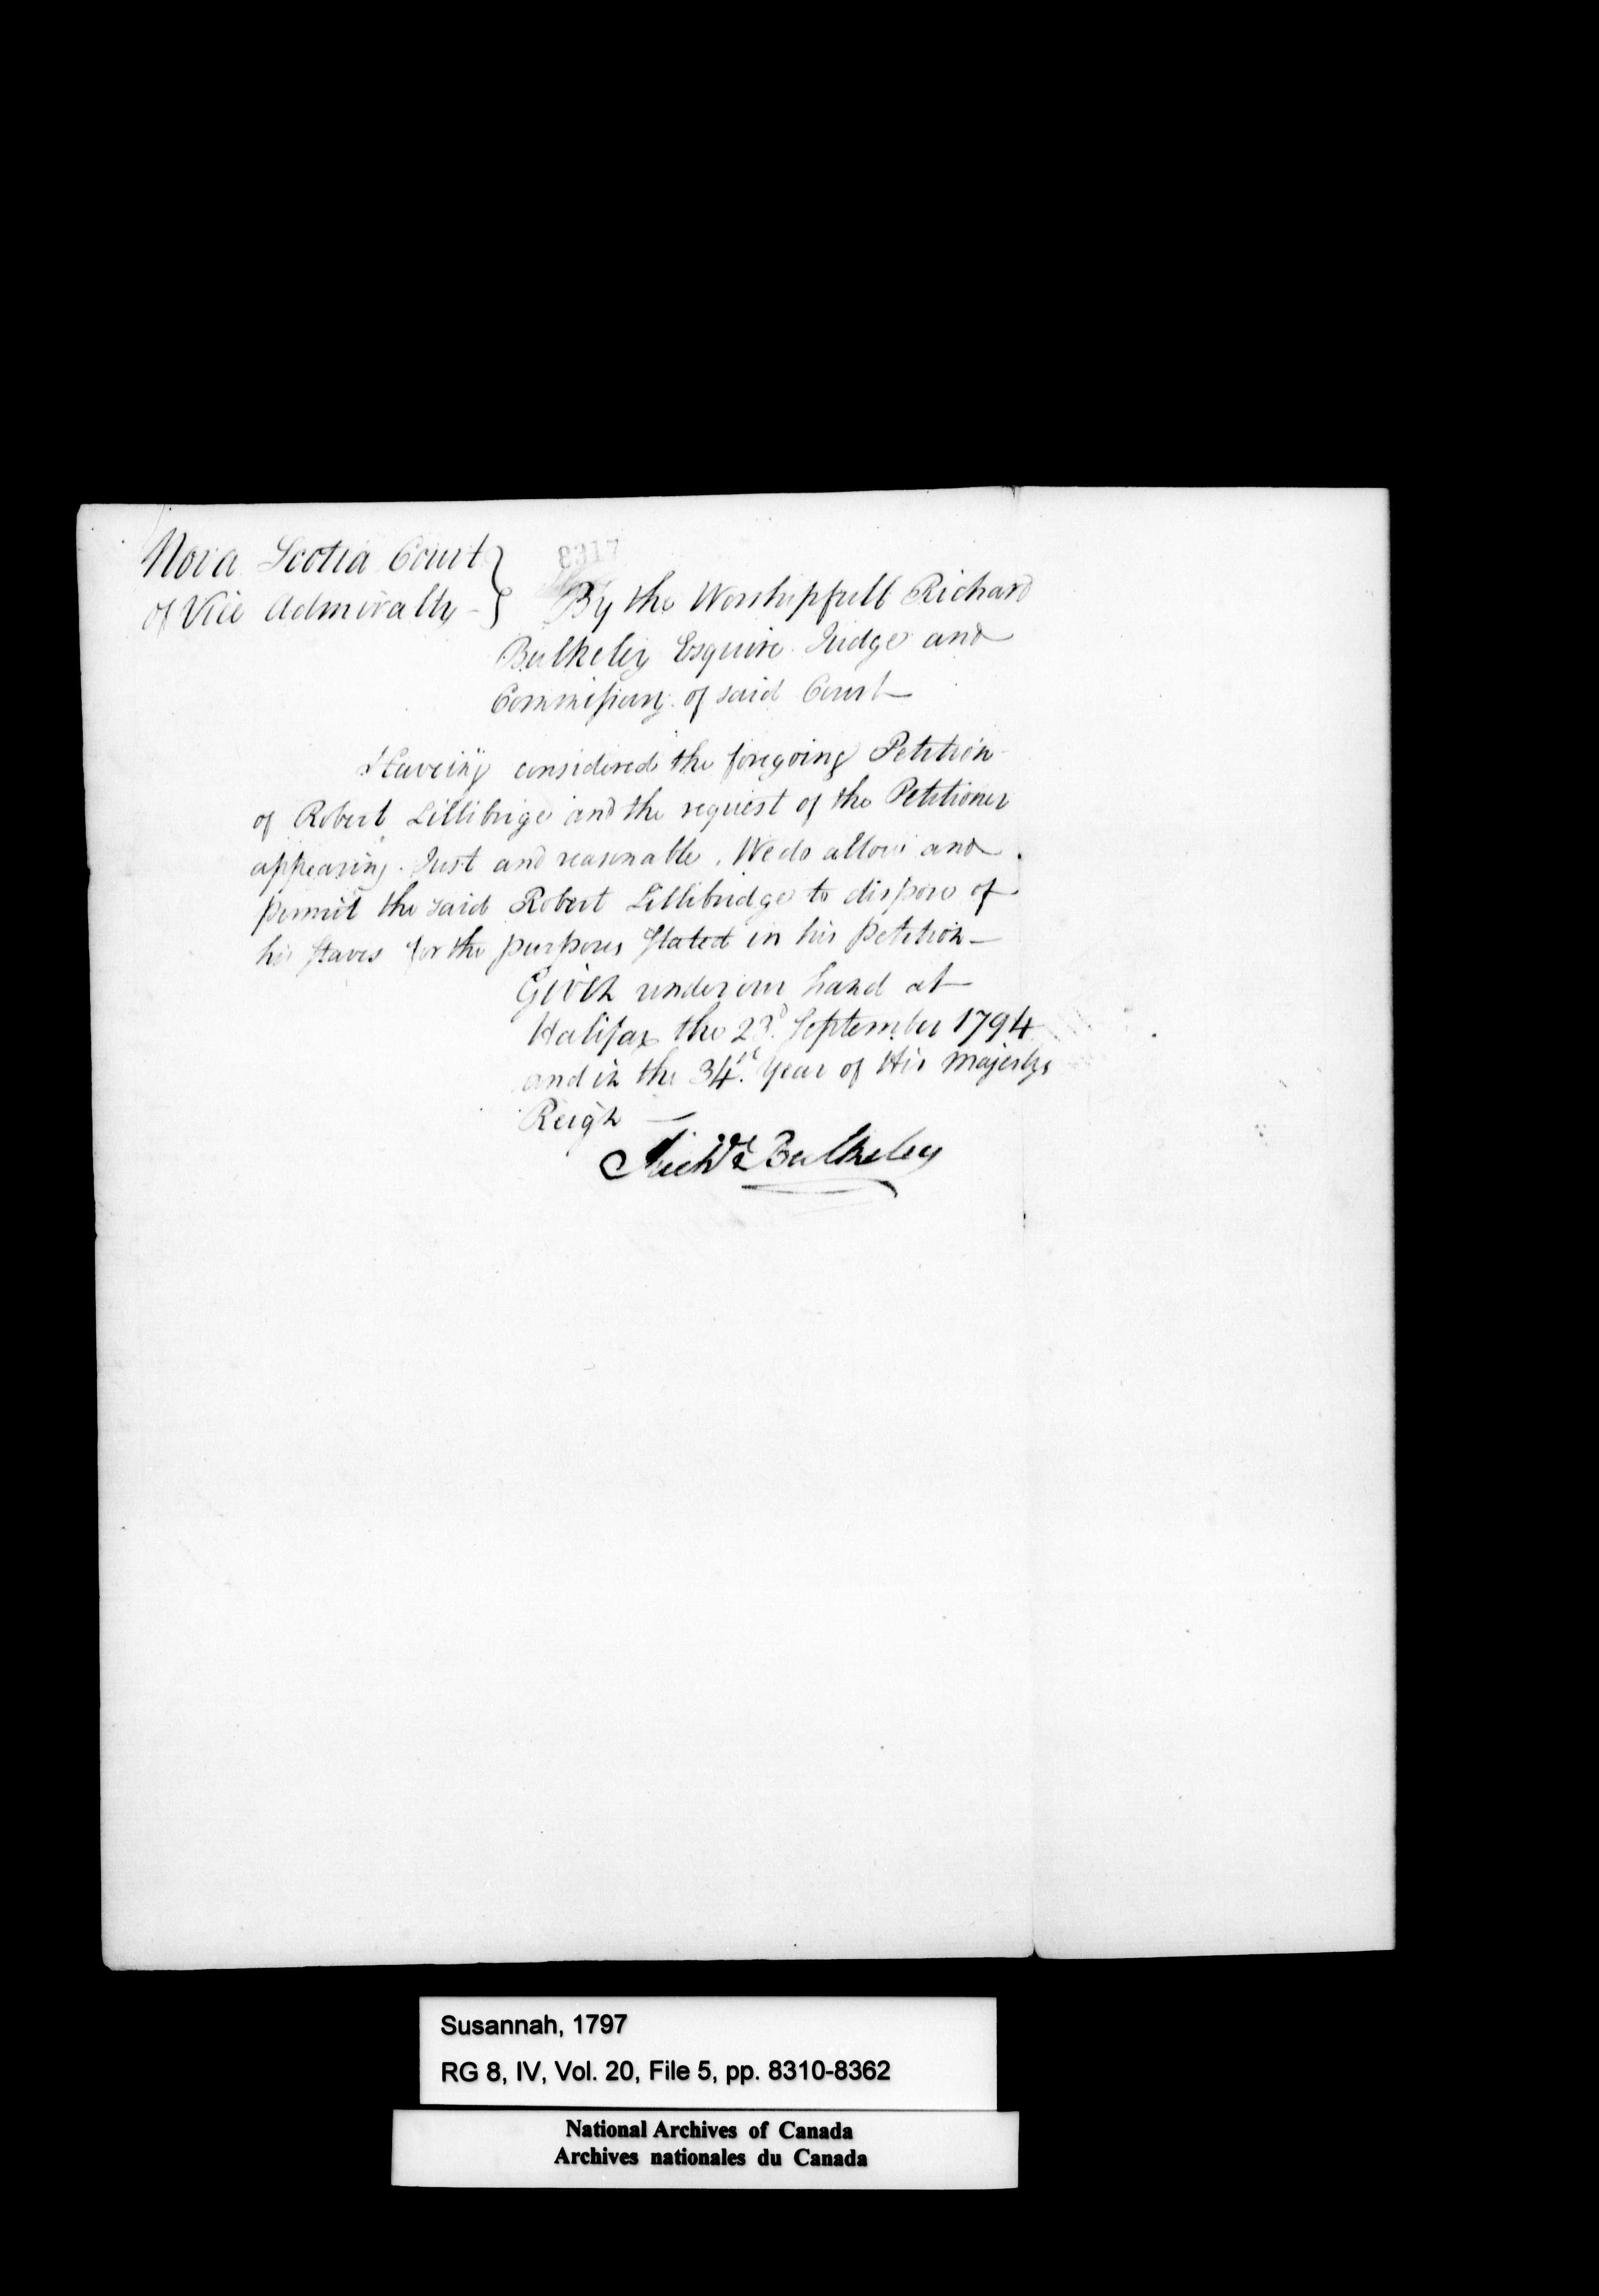 Nova Scotia Court }
of Vice Admiralty - }
8317
By the Worshipfull Richard
Bulkeley Esquire Judge and
Commissary of said Court
Haveing considered the foregoing Petition
of Robert Lillibrige and the request of the Petitioner
appearing Just and reasonable, We do allow and
permit the said Robert Lillibridge to dispose of
his staves for the purposes Stated in his petition
Given under our hand at
Halifax the 23d September 1794
and in the 34th Year of His Majestys
Reign
Richd Bulkeley
Susannah, 1797
RG 8, IV, Vol. 20, File 5, pp. 8310-8362
National Archives of Canada
Archives nationales du Canada